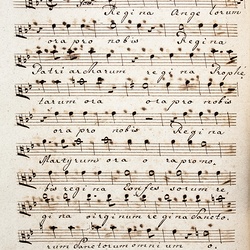 Regina Angelorum
ora pro nobis Regina
Patriarcharum regina Prophe
tarum ora ora pro nobis
ora pro nobis Regina
Martyrum ora o ra pro no
bis regina Confes sorum re
gina virginum regina Sancto
rum Sanctorum omnium o